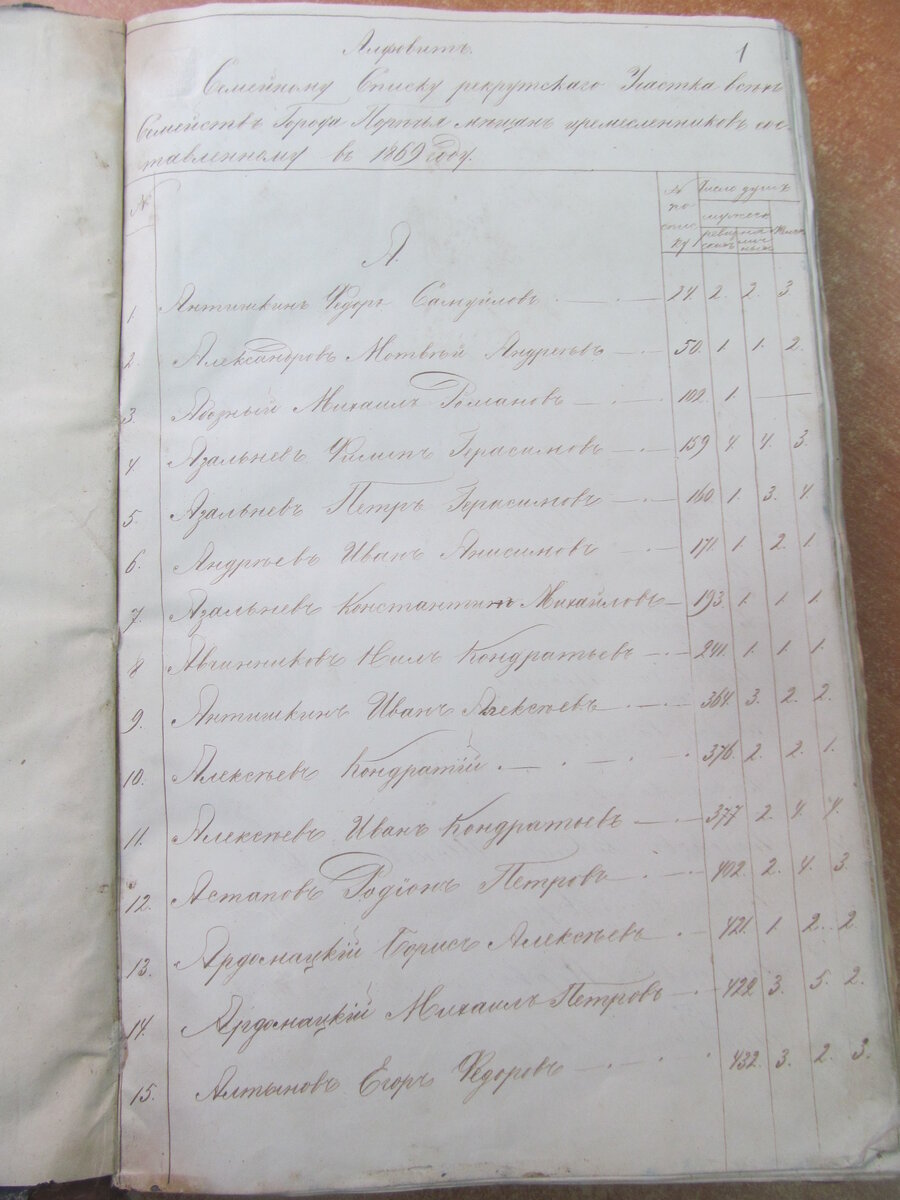 Алфовитъ. 1
Семейному Списку рекрутскаго Участка всѣхъ
Семействъ Города Порѣчья мѣщанъ иремесленниковъ сос-
тавленному въ 1869 году.
N. N по списку Число душъ
мужеск. Женск
ревизскихъ наличныхъ
А.
1. Антишкинъ Ѳедоръ Самуйловъ 24. 2. 2. 3.
2. Александровъ Мотвѣй Андреевъ 50. 1. 1. 2.
3. Михаилъ Романовъ 102. 1. —
4. Азальневъ Филипъ Герасимовъ 159 4. 4. 3.
5. Азальневъ Петръ Герасимовъ 160 1. 3. 4.
6. Андрѣевъ Иванъ Анисимовъ 171. 1. 2. 1.
7. Азальневъ Константинъ Михайловъ 193. 1. 1. 1.
8 Авчинниковъ Нилъ Кондратьевъ 241. 1. 1. 1.
9. Антишкинъ Иванъ Алексѣевъ 364. 3. 2. 2.
10. Алексѣевъ Кондратій 376. 2. 2. 1.
11. Алексѣевъ Иванъ Кондратьевъ 377 2. 4. 4.
12. Астаповъ Родіонъ Петровъ 402. 2. 4. 3.
13. Ардомацкій Борисъ Алексѣевъ 421. 1. 2. 2.
14. Ардомацкій Михаилъ Петровъ 422 3. 5. 2.
15. Алтыновъ Егоръ Ѳедоровъ 432. 3. 2. 3.